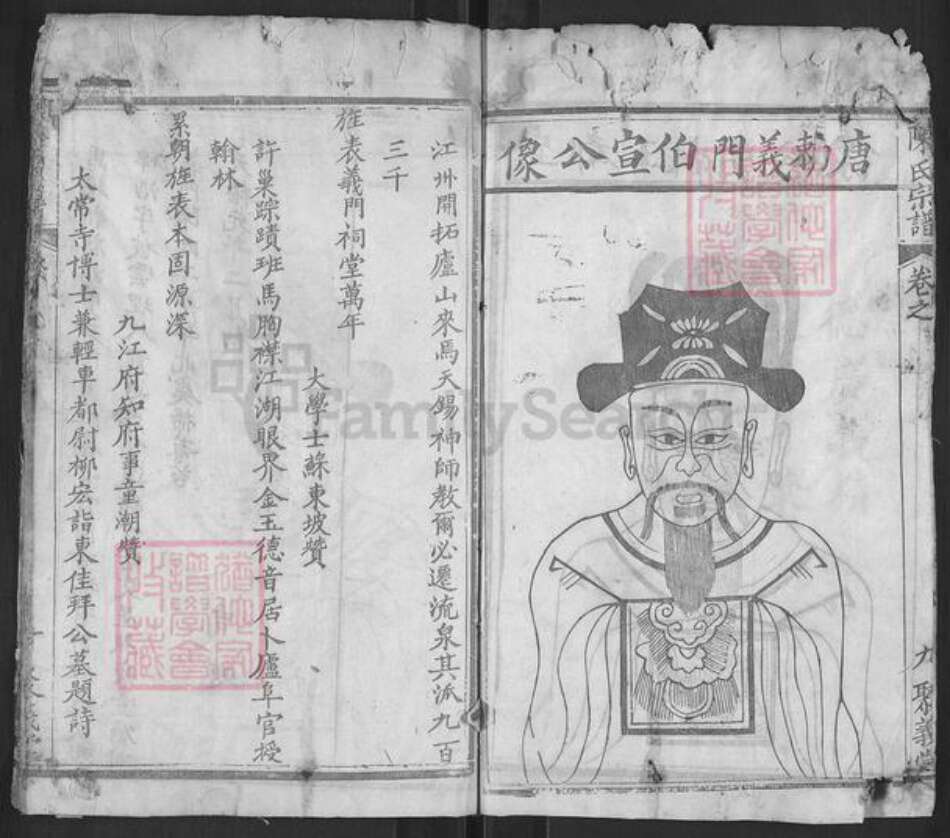 陳氏宗譜
卷之
九
聚義堂
唐勅義門伯宣公像
江州開拓廬山來馬天錫神師教爾必遷流泉其派九百
三千
旌表義門祠堂萬年
大學士蘇東坡贊
許巢踪蹟班馬胸襟江湖眼界金玉德音居卜廬阜官授
翰林
累朝旌表本固源深
九江府知府事童潮贊
太常寺博士兼輕車都尉柳宏詣東佳拜公墓題詩
FamilySearch